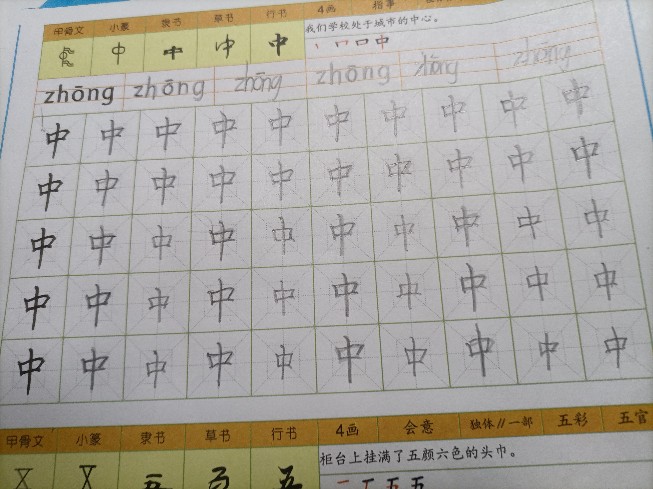 甲骨文 小篆 隶书 草书 行书 4画 指事
中 中 中 中 我们学校处于城市的中心。
丨 口 口 中
zhōng zhōng zhōng zhōng zhōng zhōng
中 中 中 中 中 中 中 中 中 中
中 中 中 中 中 中 中 中 中 中
中 中 中 中 中 中 中 中 中 中
中 中 中 中 中 中 中 中 中 中
中 中 中 中 中 中 中 中 中 中
甲骨文 小篆 隶书 草书 行书 4画 会意 独体//一部 五彩 五官
柜台上挂满了五颜六色的头巾。
五 五 五 一 丅 五 五